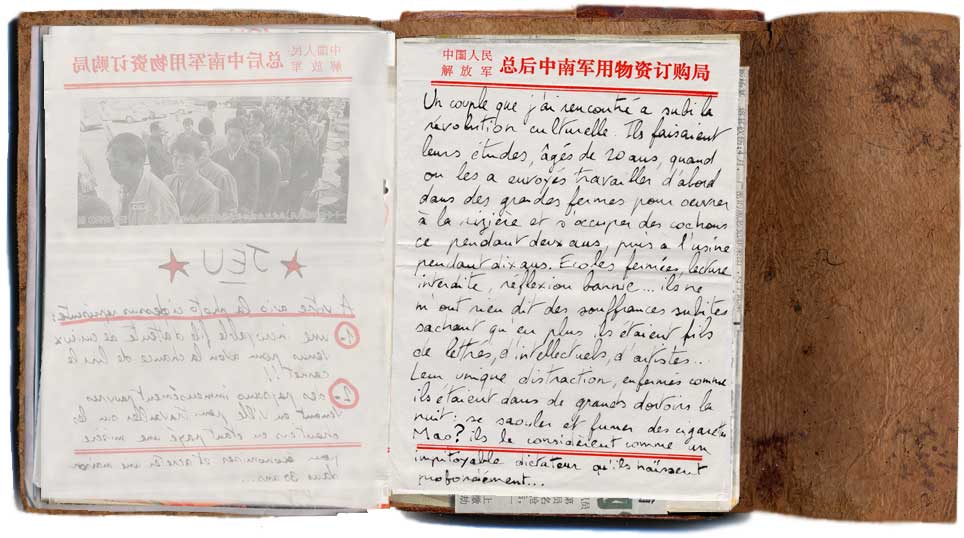 中国人民
解放军 总后中南军用物资订购局
JEU
A votre avis la photo ci-dessus représente:
1- une incroyable file d'attente de curieux
venus pour avoir la chance de lire le
carnet!!
2- des paysans immensément pauvres
venant en ville pour travailler sur les
chantiers en étant payé une misère
pour économiser et acheter une maison
dans 30 ans...
中国人民
解放军 总后中南军用物资订购局
Un couple que j'ai rencontré a subi la
révolution culturelle. Ils faisaient
leurs études, âgés de 20 ans, quand
on les a envoyés travailler d'abord
dans des grandes fermes pour oeuvrer
à la rizière et s'occuper des cochons
ce pendant deux ans, puis a l'usine
pendant dix ans. Ecoles fermées, lecture
interdite, réflexion bannie... ils ne
m'ont rien dit des souffrances subites
sachant qu'en plus ils étaient fils
de lettrés, d'intellectuels, d'artistes...
Leur unique distraction, enfermés comme
ils étaient dans de grands dortoirs la
nuit: se saouler et fumer des cigarettes
Mao? ils le considèrent comme un
impitoyable dictateur qu'ils haïssent
profondément...